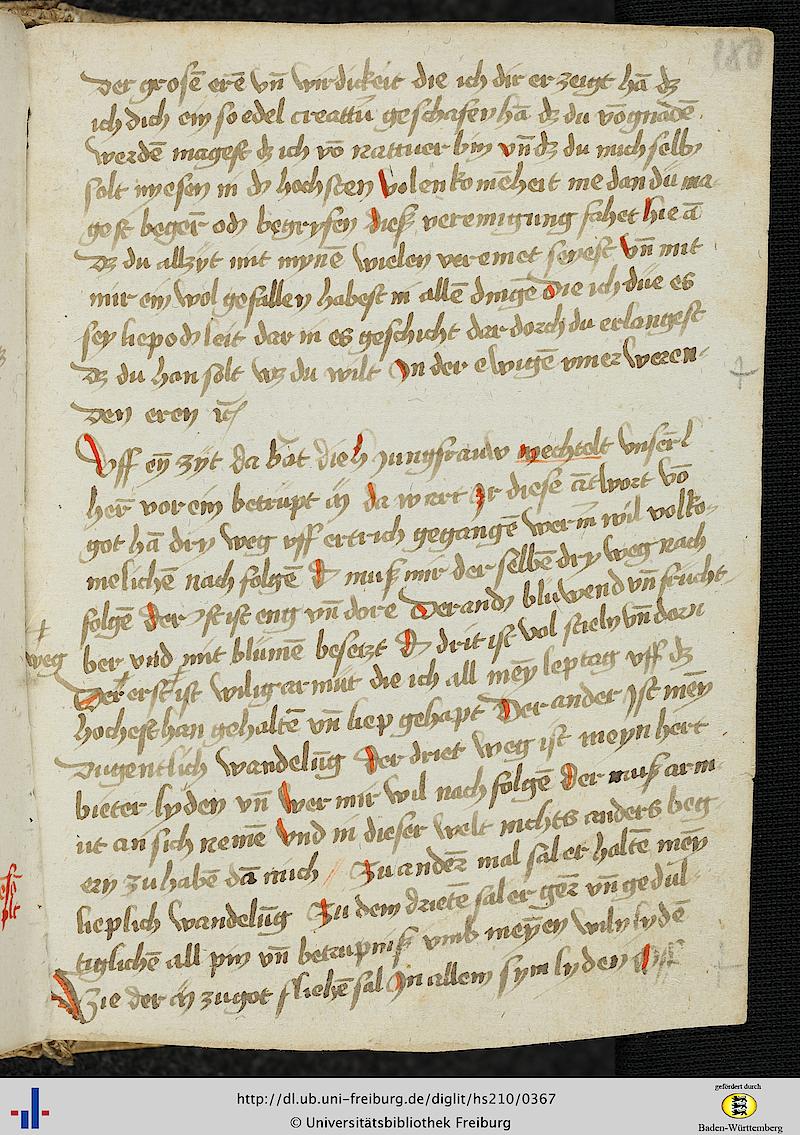 180
Der grosē erē vn̄ wirdickeit die ich dir er zeigt hā dz
ich dich ein so edel creattū geschafen hā dz du vō gnadē
werdē magest dz ich vō nattuer bin vn̄ dz du mich selbs
solt nyesen in d' hochsten volenkomēheit me dan du ma-
gest begeŕ od' begryfen diesz vereinigung fahet hie ā
Dz du allzyt mit mynē wielen vereinet seyest vn̄ mit
mir ein wol gefallen habest in allē dingē Die ich düe es
sey liep od' leit dar in es geschicht dar dorch du erlangest
Dz du han solt wz du wilt In der ewigē vmer weren-
den eren
Uff ey zyt da bat die h jungfrauw mechtelt vnserē
herr vor ein betrüpt da wart Ir diese ātwort vō
got hā dry weg vff ertrich gegangē wer mir wil volko-
melichē nach folgē d' musz mir der selbē dry weg nach
folgē Der ist eng vn̄ dore Der and' blüwend vn̄ frücht-
ber vnd mit blümē besetzt D' drit ist vol stieln vn̄ dorn
weg
Der erst ist wilig armüt die ich all mey leptag vff dz
hochest han gehaltē vn̄ liep gehapt Der ander Ist mey
Dugentlich wandelūg Der driet weg ist meyn hert
bieter lyden vn̄ wer mir wil nach folgē Der musz arm-
üt an sich nemē Vnd in dieser welt nichts anders beg-
ern zu habē dā mich // Zu anderē mal sal er haltē mey
lieplich wandelūg Zu dem drietē sal er gerē vn̄ gedul-
tiglichē all pin vn̄ betrüpnisz vmb meyen wiln lydē
Wie der zu got fliehē sal In allem sym lyden
http://dl.ub.uni-freiburg.de/diglit/hs210/0367
© Universitätsbibliothek Freiburg
gefördert durch
Baden-Württemberg